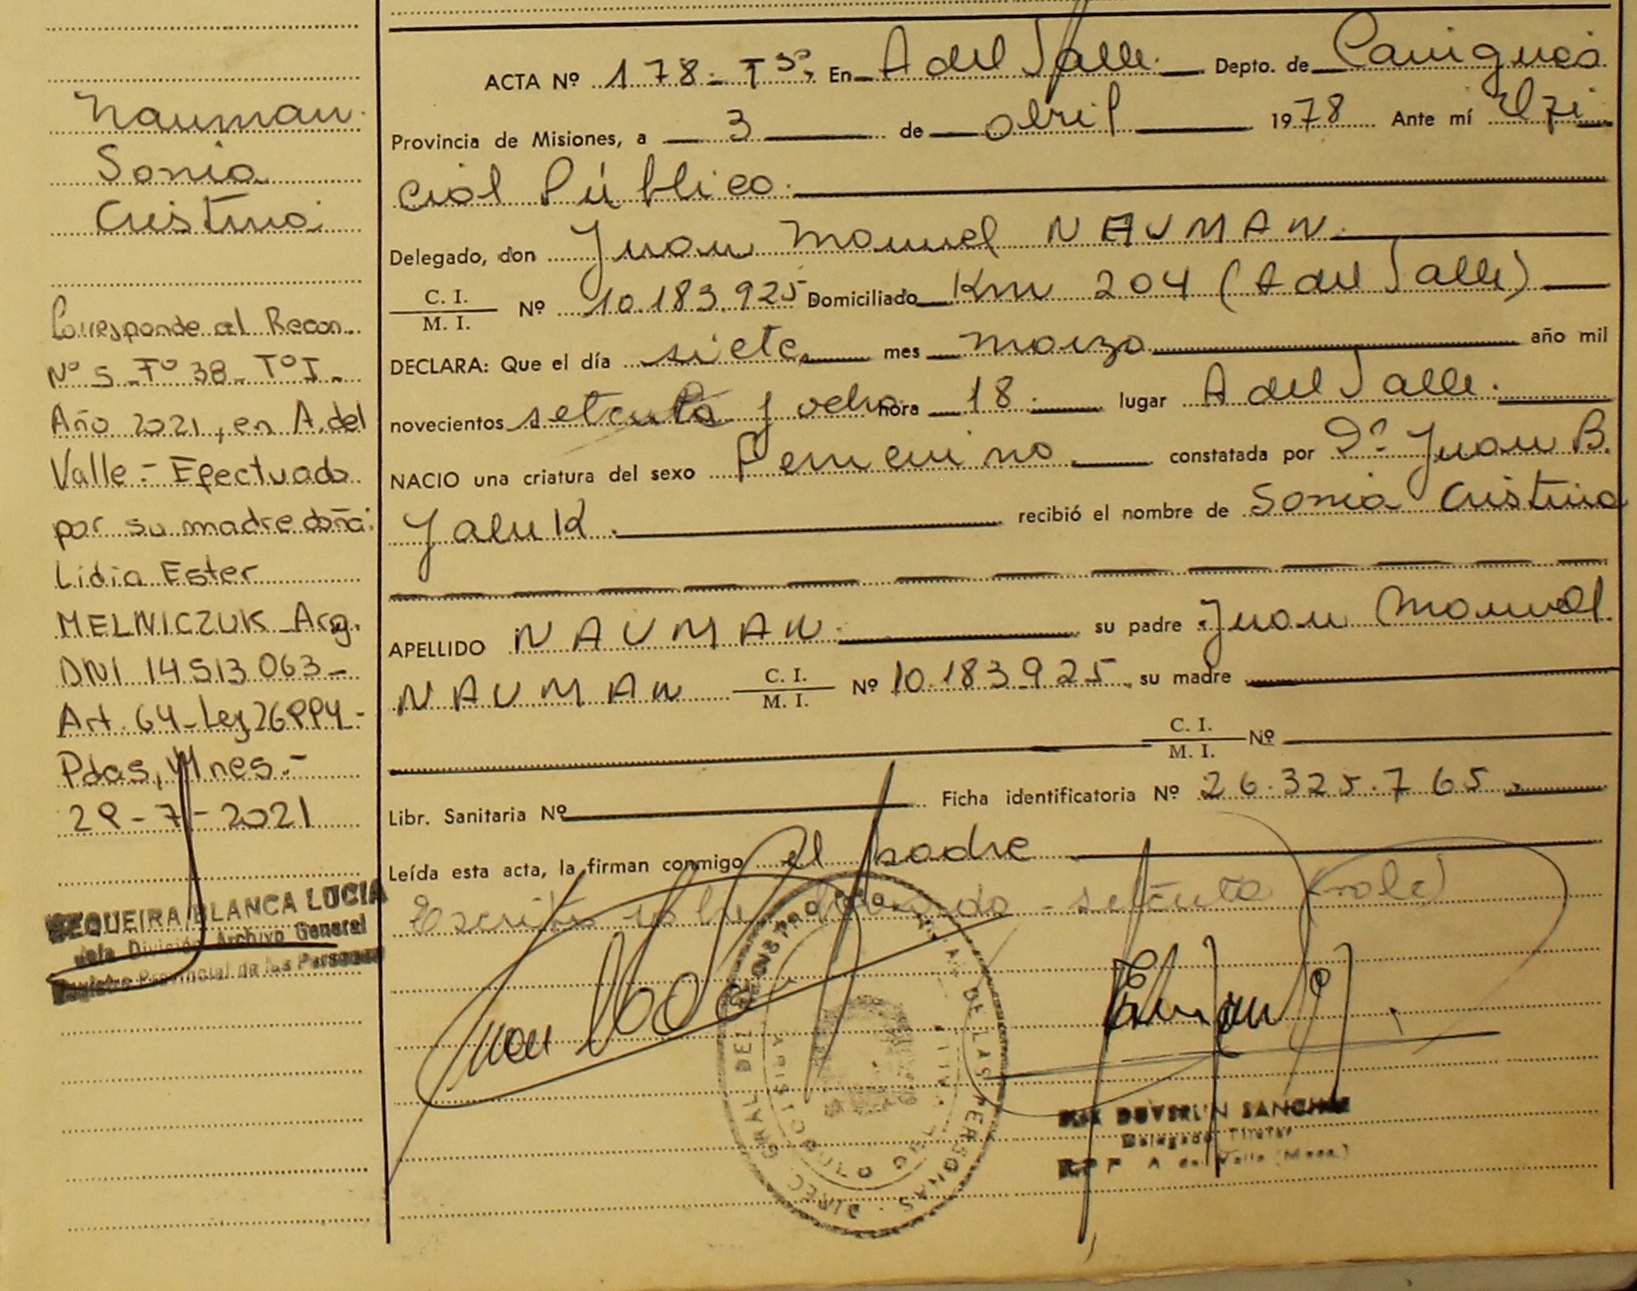 Nauman
Sonia
Cristina
Corresponde al Recon.
Nº 5 - Fº 38 - Tº I -
Año 2021, en A. del
Valle - Efectuado
por su madre doña:
Lidia Ester
MELNICZUK Arg.
DNI 14513.063 -
Art. 64 - Ley 26994 -
Pdas, Mnes.-
29 - 7 - 2021
SEQUEIRA BLANCA LUCIA
Jefe División Archivo General
Registro Provincial de las Personas
ACTA Nº 178 - T 3º, En A del Valle. Depto. de Cainguás
Provincia de Misiones, a 3 de abril 1978 Ante mí Ofi
cial Público.
Delegado, don Juan Manuel NAUMAN.
C. I. / M. I. Nº 10.183.925 Domiciliado Km 204 (A del Valle)
DECLARA: Que el día siete, mes marzo año mil
novecientos setenta y ocho hora 18. lugar A del Valle.
NACIO una criatura del sexo Femenino. constatada por Dº Juan B.
Jaluk. recibió el nombre de Sonia Cristina
APELLIDO NAUMAN. su padre Juan Manuel
NAUMAN C. I. / M. I. Nº 10.183.925, su madre
C. I. / M. I. Nº
Libr. Sanitaria Nº Ficha identificatoria Nº 26.325.765.
Leída esta acta, la firman conmigo el padre
Escrito sobre - setenta (vale)
Juan
DIREC. GRAL. DEL REGISTRO PROVINCIAL DE LAS PERSONAS
ARISTOBULO DEL VALLE
DUVERLIN SANCHEZ
Delegado Titular
R.P.P. A. del Valle (Mnes.)